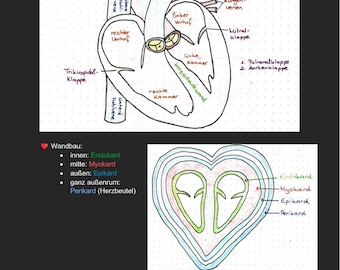 Lungen-
venen
linker
Vorhof
rechter
Vorhof
Mitral-
klappe
linke
Kammer
1. Pulmonalklappe
2. Aortenklappe
Trikuspidal-
klappe
rechte
Kammer
untere
Hohlvene
Wandbau:
innen: Endokard
mitte: Myokard
außen: Epikard
ganz außenrum:
Perikard (Herzbeutel)
Endokard
Myokard
Epikard
Perikard